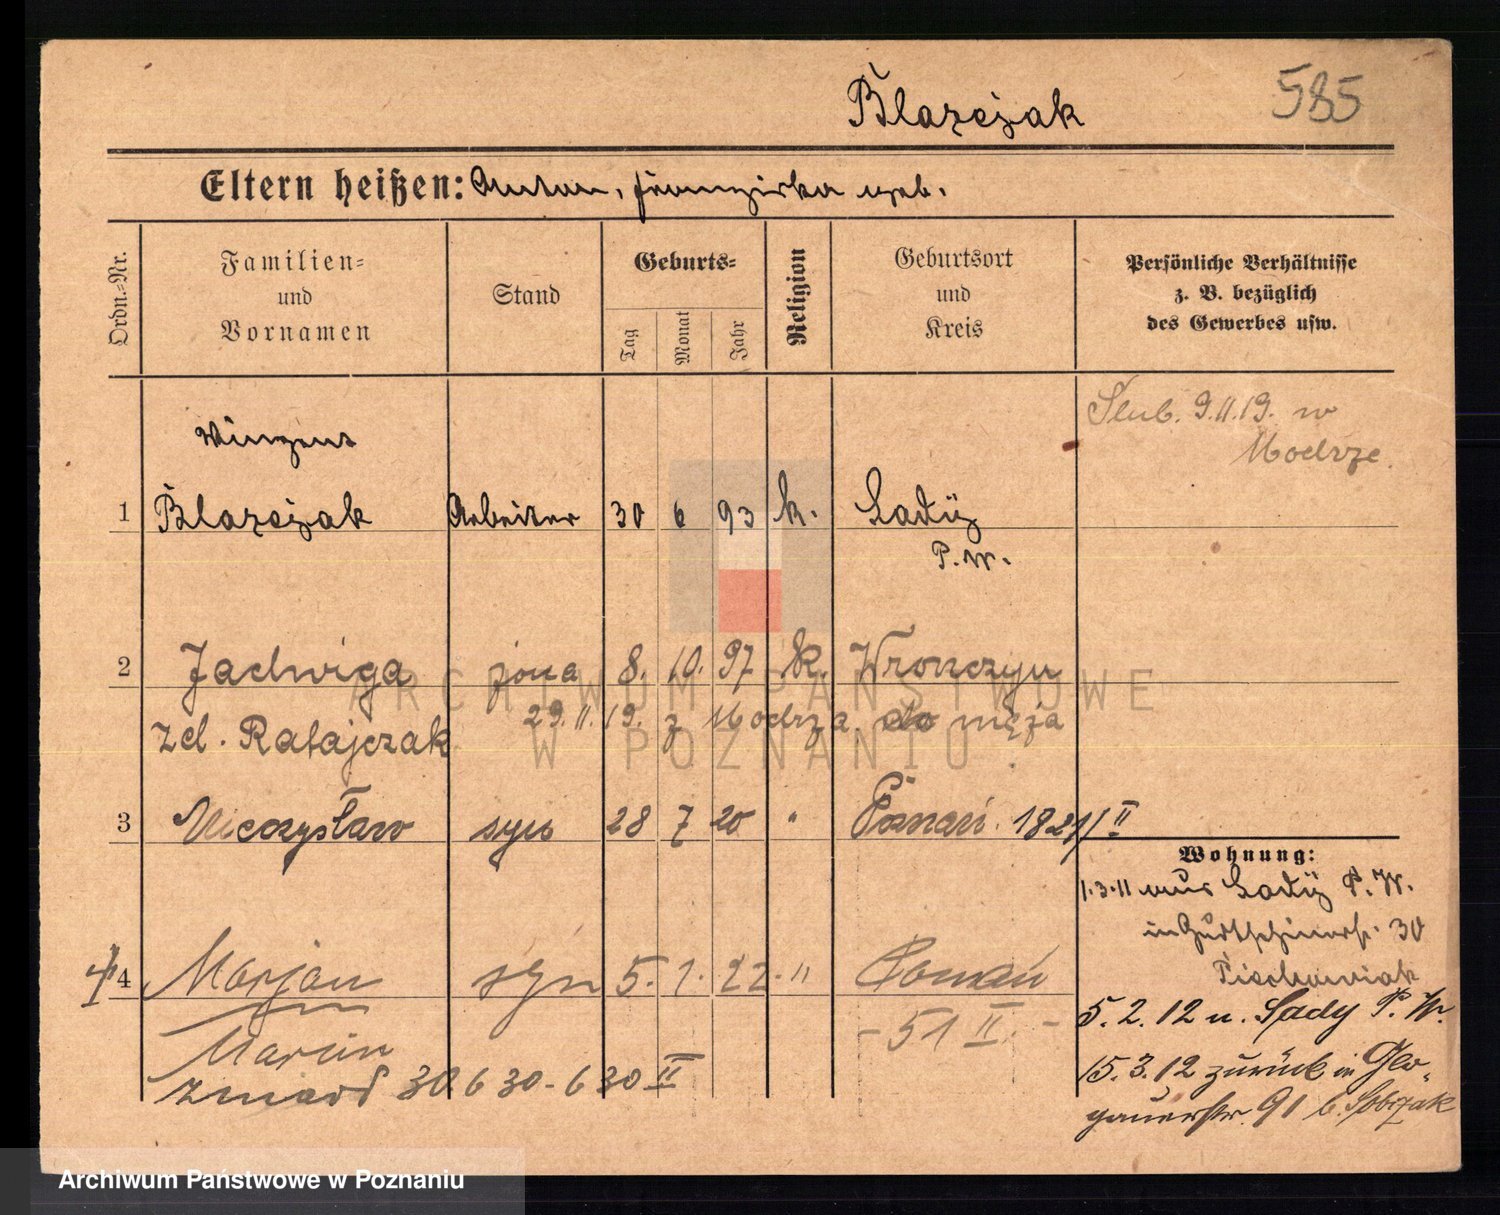 Blazejak
585
Eltern heißen: Anton, Franziska geb.
Ordn.-Nr.
Familien-
und
Vornamen
Stand
Geburts-
Tag
Monat
Jahr
Religion
Geburtsort
und
Kreis
Persönliche Verhältnisse
z. B. bezüglich
des Gewerbes usw.
Ślub. 9.11.19. w
Modrze.
Winzent
1 Blazejak Arbeiter 30 6 93 k. Sady
P.W.
2 Jadwiga żona 8. 10. 97 k. Wronczyn
29.11.19. z Modrza do męża
zd. Ratajczak
3 Mieczysław syn 28 7 20 " Poznań. 1821/II
Wohnung:
1.3.11 aus Sady P.W.
in 30
5.2.12 n. Sady P.W.
15.3.12 zurück in Glo-
gauerstr. 91 b. Sobczak
4 Marjan syn 5. 1. 22. " Poznań
- 51 II. -
Marcin
zmarł 30 6 30 - 6 30 II
ARCHIWUM PAŃSTWOWE
W POZNANIU
Archiwum Państwowe w Poznaniu